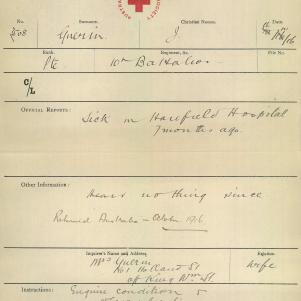 No.
Surname.
Christian Names.
Date
Guerin.
J.
Rank.
Regiment, &c.
File No.
Pte
10th Battalion
C/L
OFFICIAL REPORTS:
Sick in Harefield Hospital
7 months ago.
Other Information:
Hears nothing since
Returned Australia - 1916
Inquirer's Name and Address,
Relation
Mrs Guerin
wife
No 1 Holland St
off King Wm St.
Instructions:
Enquire condition &